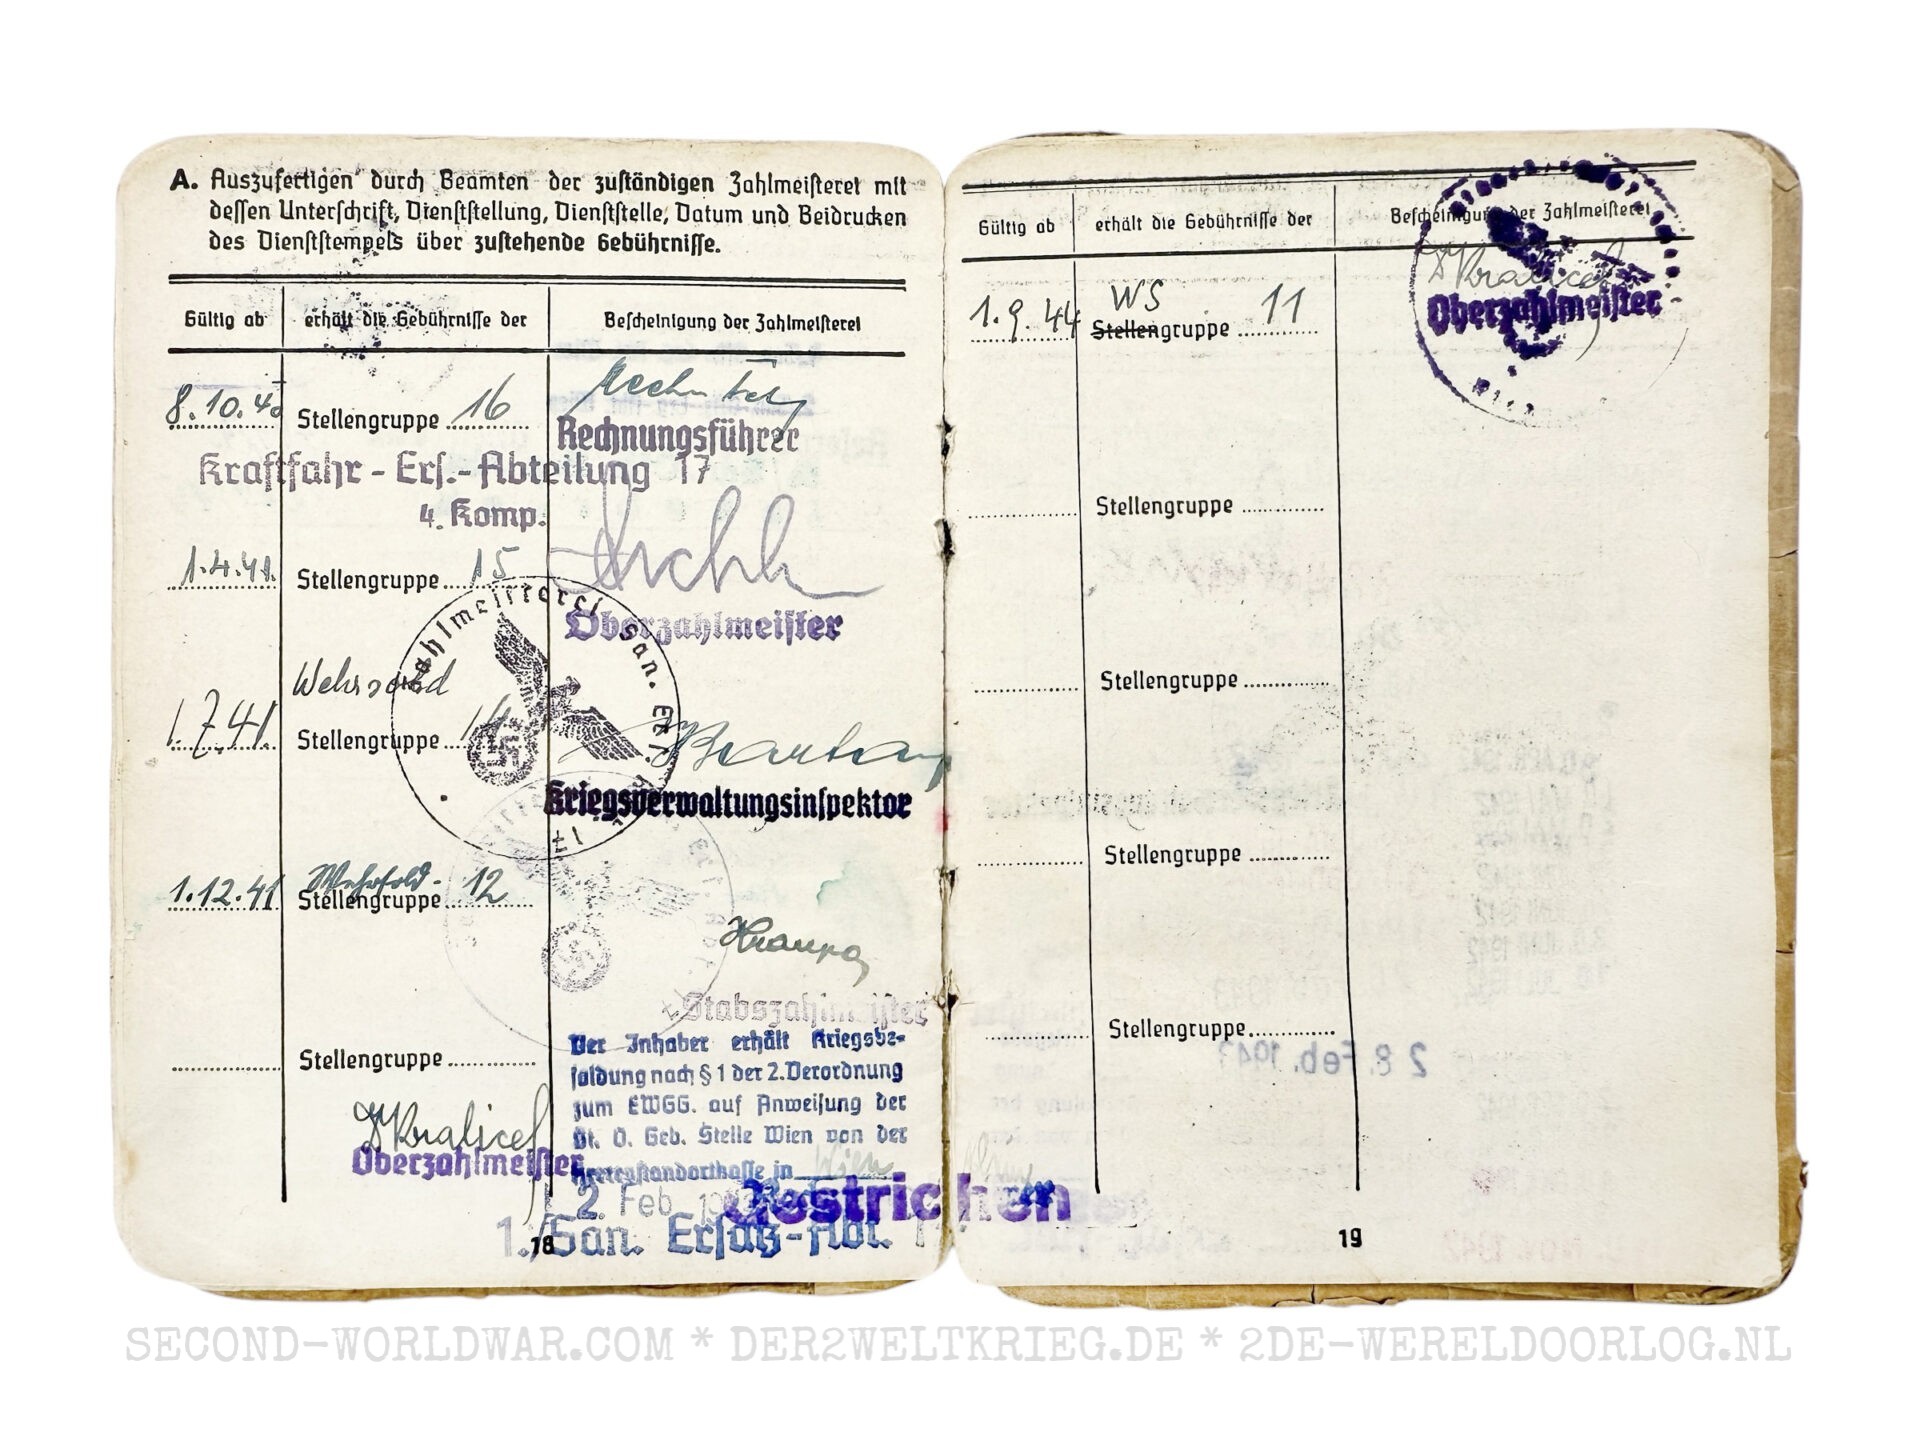 A. Auszufertigen durch Beamten der zuständigen Zahlmeisterei mit
dessen Unterschrift, Dienststellung, Dienststelle, Datum und Beidrucken
des Dienststempels über zustehende Gebührnisse.
Gültig ab erhält die Gebührnisse der Bescheinigung der Zahlmeisterei
8.10.40 Stellengruppe 16
Rechnungsführer
Kraftfahr-Ers.-Abteilung 17
4. Komp.
1.4.41. Stellengruppe 15
Oberzahlmeister
Zahlmeisterei San. Ers. 17
Wehrsold
1.7.41. Stellengruppe 14
Kriegsverwaltungsinspektor
Wehrsold-
1.12.41 Stellengruppe 12
Stabszahlmeister
Der Inhaber erhält Kriegsbe-
soldung nach § 1 der 2. Verordnung
zum EWGG. auf Anweisung der
O. Geb. Stelle Wien von der
in Wien
Stellengruppe
Kralicek
Oberzahlmeister
2. Feb.
Gestrichen
1./San. Ersatz-Abt. 17
18
Gültig ab erhält die Gebührnisse der Bescheinigung der Zahlmeisterei
Kralicek
Oberzahlmeister
WS
1.9.44 Stellengruppe 11
Stellengruppe
Stellengruppe
Stellengruppe
Stellengruppe
28. Feb. 1943
19
SECOND-WORLDWAR.COM * DER2WELTKRIEG.DE * 2DE-WERELDOORLOG.NL